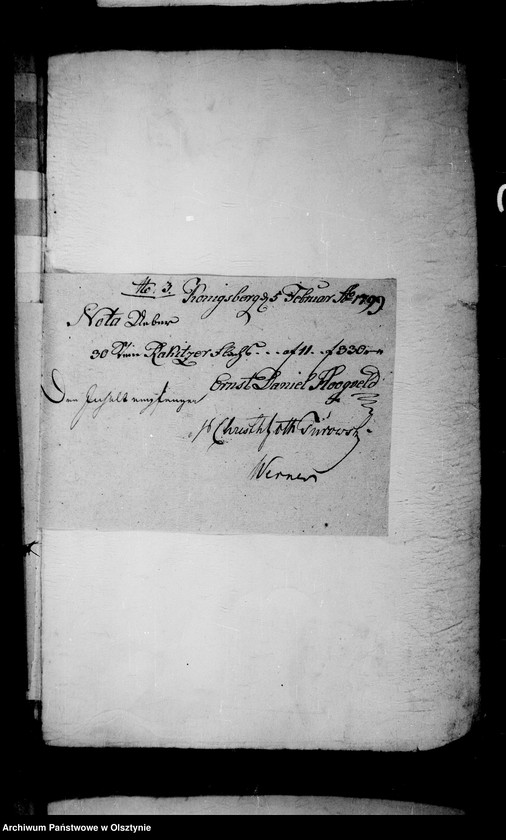 No. 3. Königsberg d 5 Februar Ao 1799
Nota Ueber
30 Rakitzer Flachs . . . af 11 . . f 330 --
Ernst Daniel Hoogveld
Den Inhalt empfangen
Christh Goth Turowsky
Werner
Archiwum Państwowe w Olsztynie